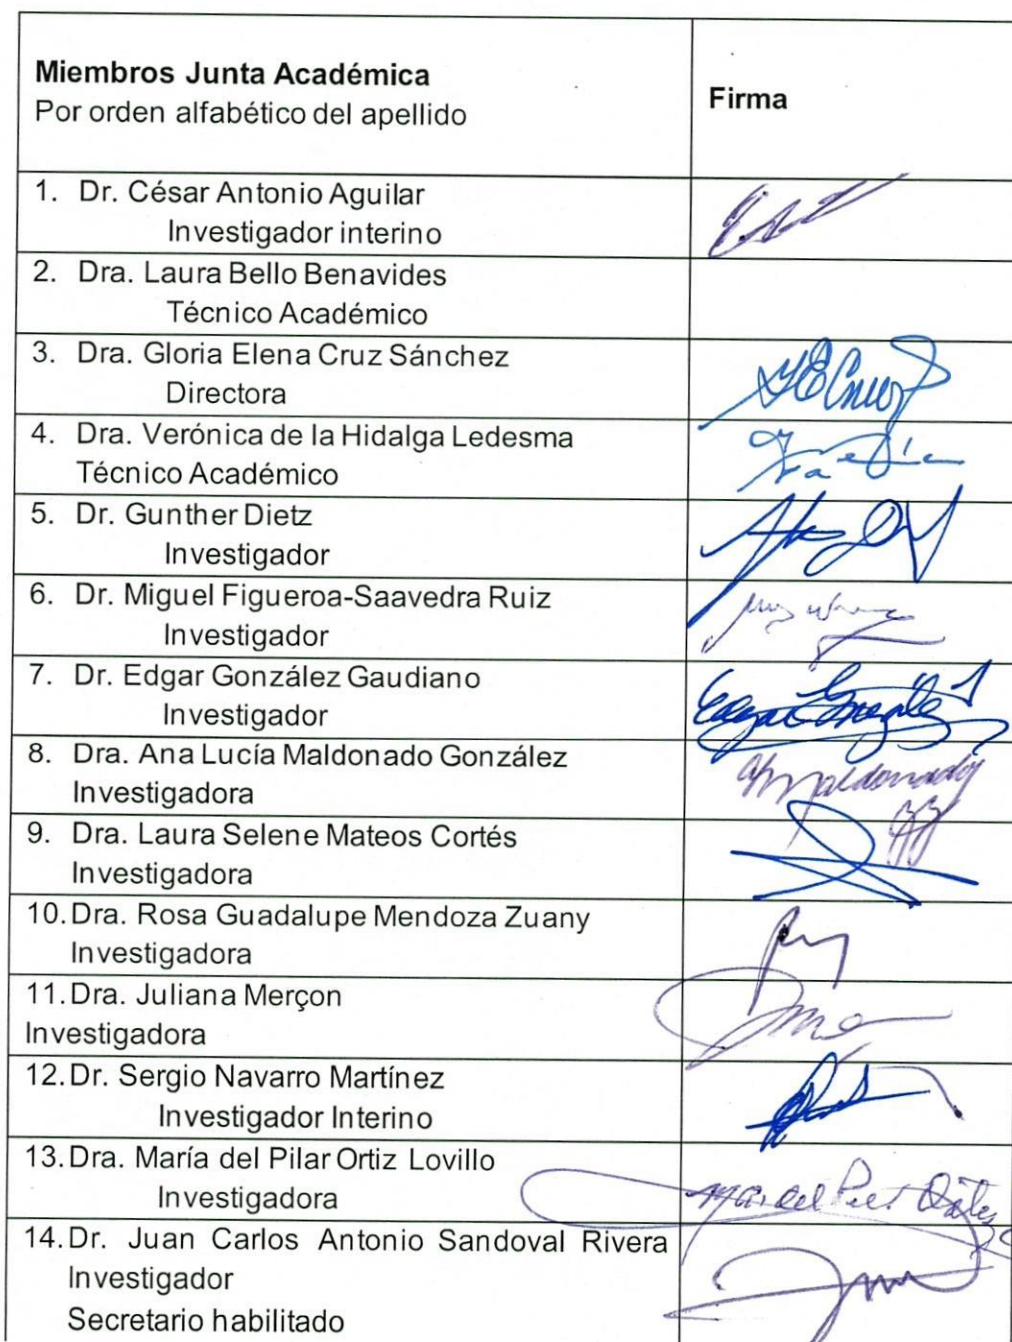 Miembros Junta Académica
Por orden alfabético del apellido
Firma
1. Dr. César Antonio Aguilar
Investigador interino
2. Dra. Laura Bello Benavides
Técnico Académico
3. Dra. Gloria Elena Cruz Sánchez
Directora
GECruz
4. Dra. Verónica de la Hidalga Ledesma
Técnico Académico
5. Dr. Gunther Dietz
Investigador
6. Dr. Miguel Figueroa-Saavedra Ruiz
Investigador
7. Dr. Edgar González Gaudiano
Investigador
Edgar González
8. Dra. Ana Lucía Maldonado González
Investigadora
Maldonado
9. Dra. Laura Selene Mateos Cortés
Investigadora
10. Dra. Rosa Guadalupe Mendoza Zuany
Investigadora
11. Dra. Juliana Merçon
Investigadora
12. Dr. Sergio Navarro Martínez
Investigador Interino
13. Dra. María del Pilar Ortiz Lovillo
Investigadora
14. Dr. Juan Carlos Antonio Sandoval Rivera
Investigador
Secretario habilitado